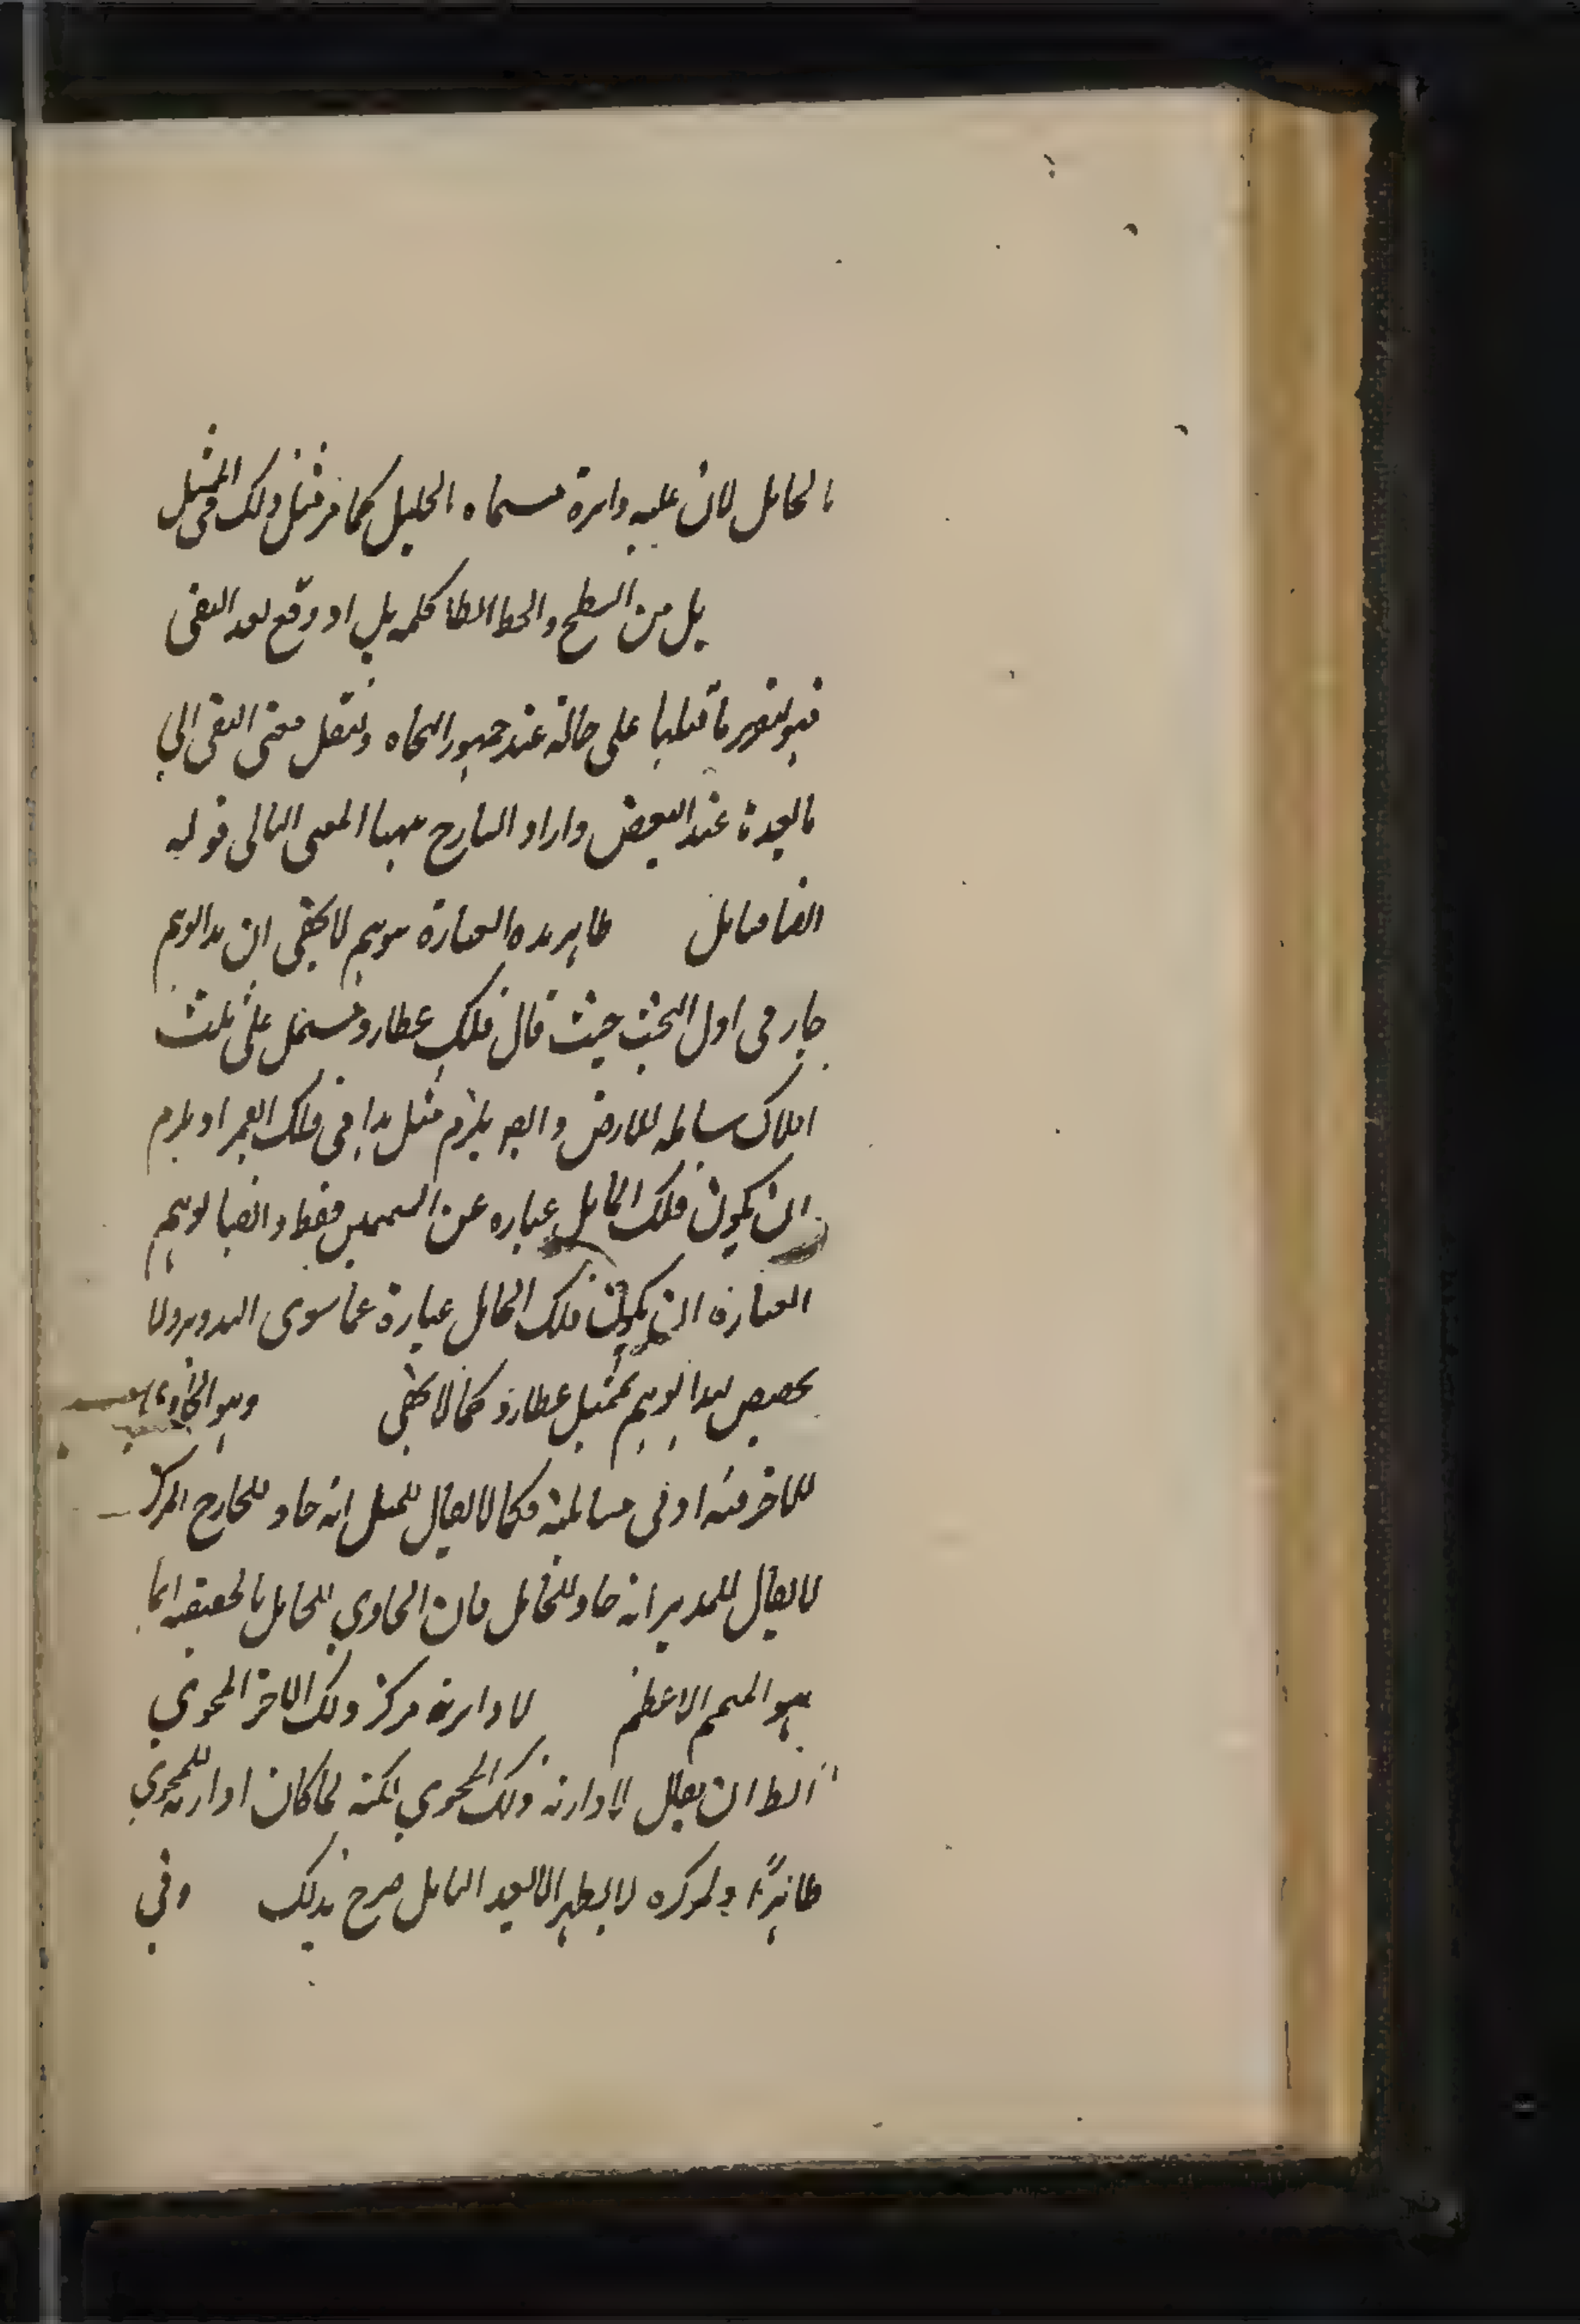 بالحامل لان عليه دائرة مسماه الحليل كما مر مثل ذلك فى الممثل
بل من السطح والخط الظا كلمه بل اذ وقع بعد النفى
فهو لتقرير ما قبلها على حاله عند جمهور النحاه وتنقل معنى النفى الى
ما بعده عند البعض واراد الشارح ههنا المعنى الثانى قوله
ايضا مايل ظاهر هذه العبارة موهم لا يخفى ان هذا الوهم
جار فى اول البحث حيث قال فلك عطارد مشتمل على ثلث
افلاك شامله للارض وايضا يلزم مثل هذا فى فلك القمر اذ يلزم
ان يكون فلك المايل عباره عن المتممين فقط وايضا توهم
العبارة ان يكون فلك الحامل عبارة عما سوى التدوير ولا
تخصيص لهذا الوهم بممثل عطارد كما لا يخفى وهو الحاوى
للاخر منه اذ فى مسائلية فكما لا يقال للممثل انه حاو للخارج المركز
لا يقال للمدير انه حاو للحامل فان الحاوى للحامل بالحقيقه انما
هو المتمم الاعظم لادارته مركز ذلك الاخر المحوى
الظ ان يعلل لادارته ذلك المحوى لكنه لما كان ادارته للمحوى
ظاهرًا ولمركزه لا يظهر الا بعد التامل صرح بذلك وفى